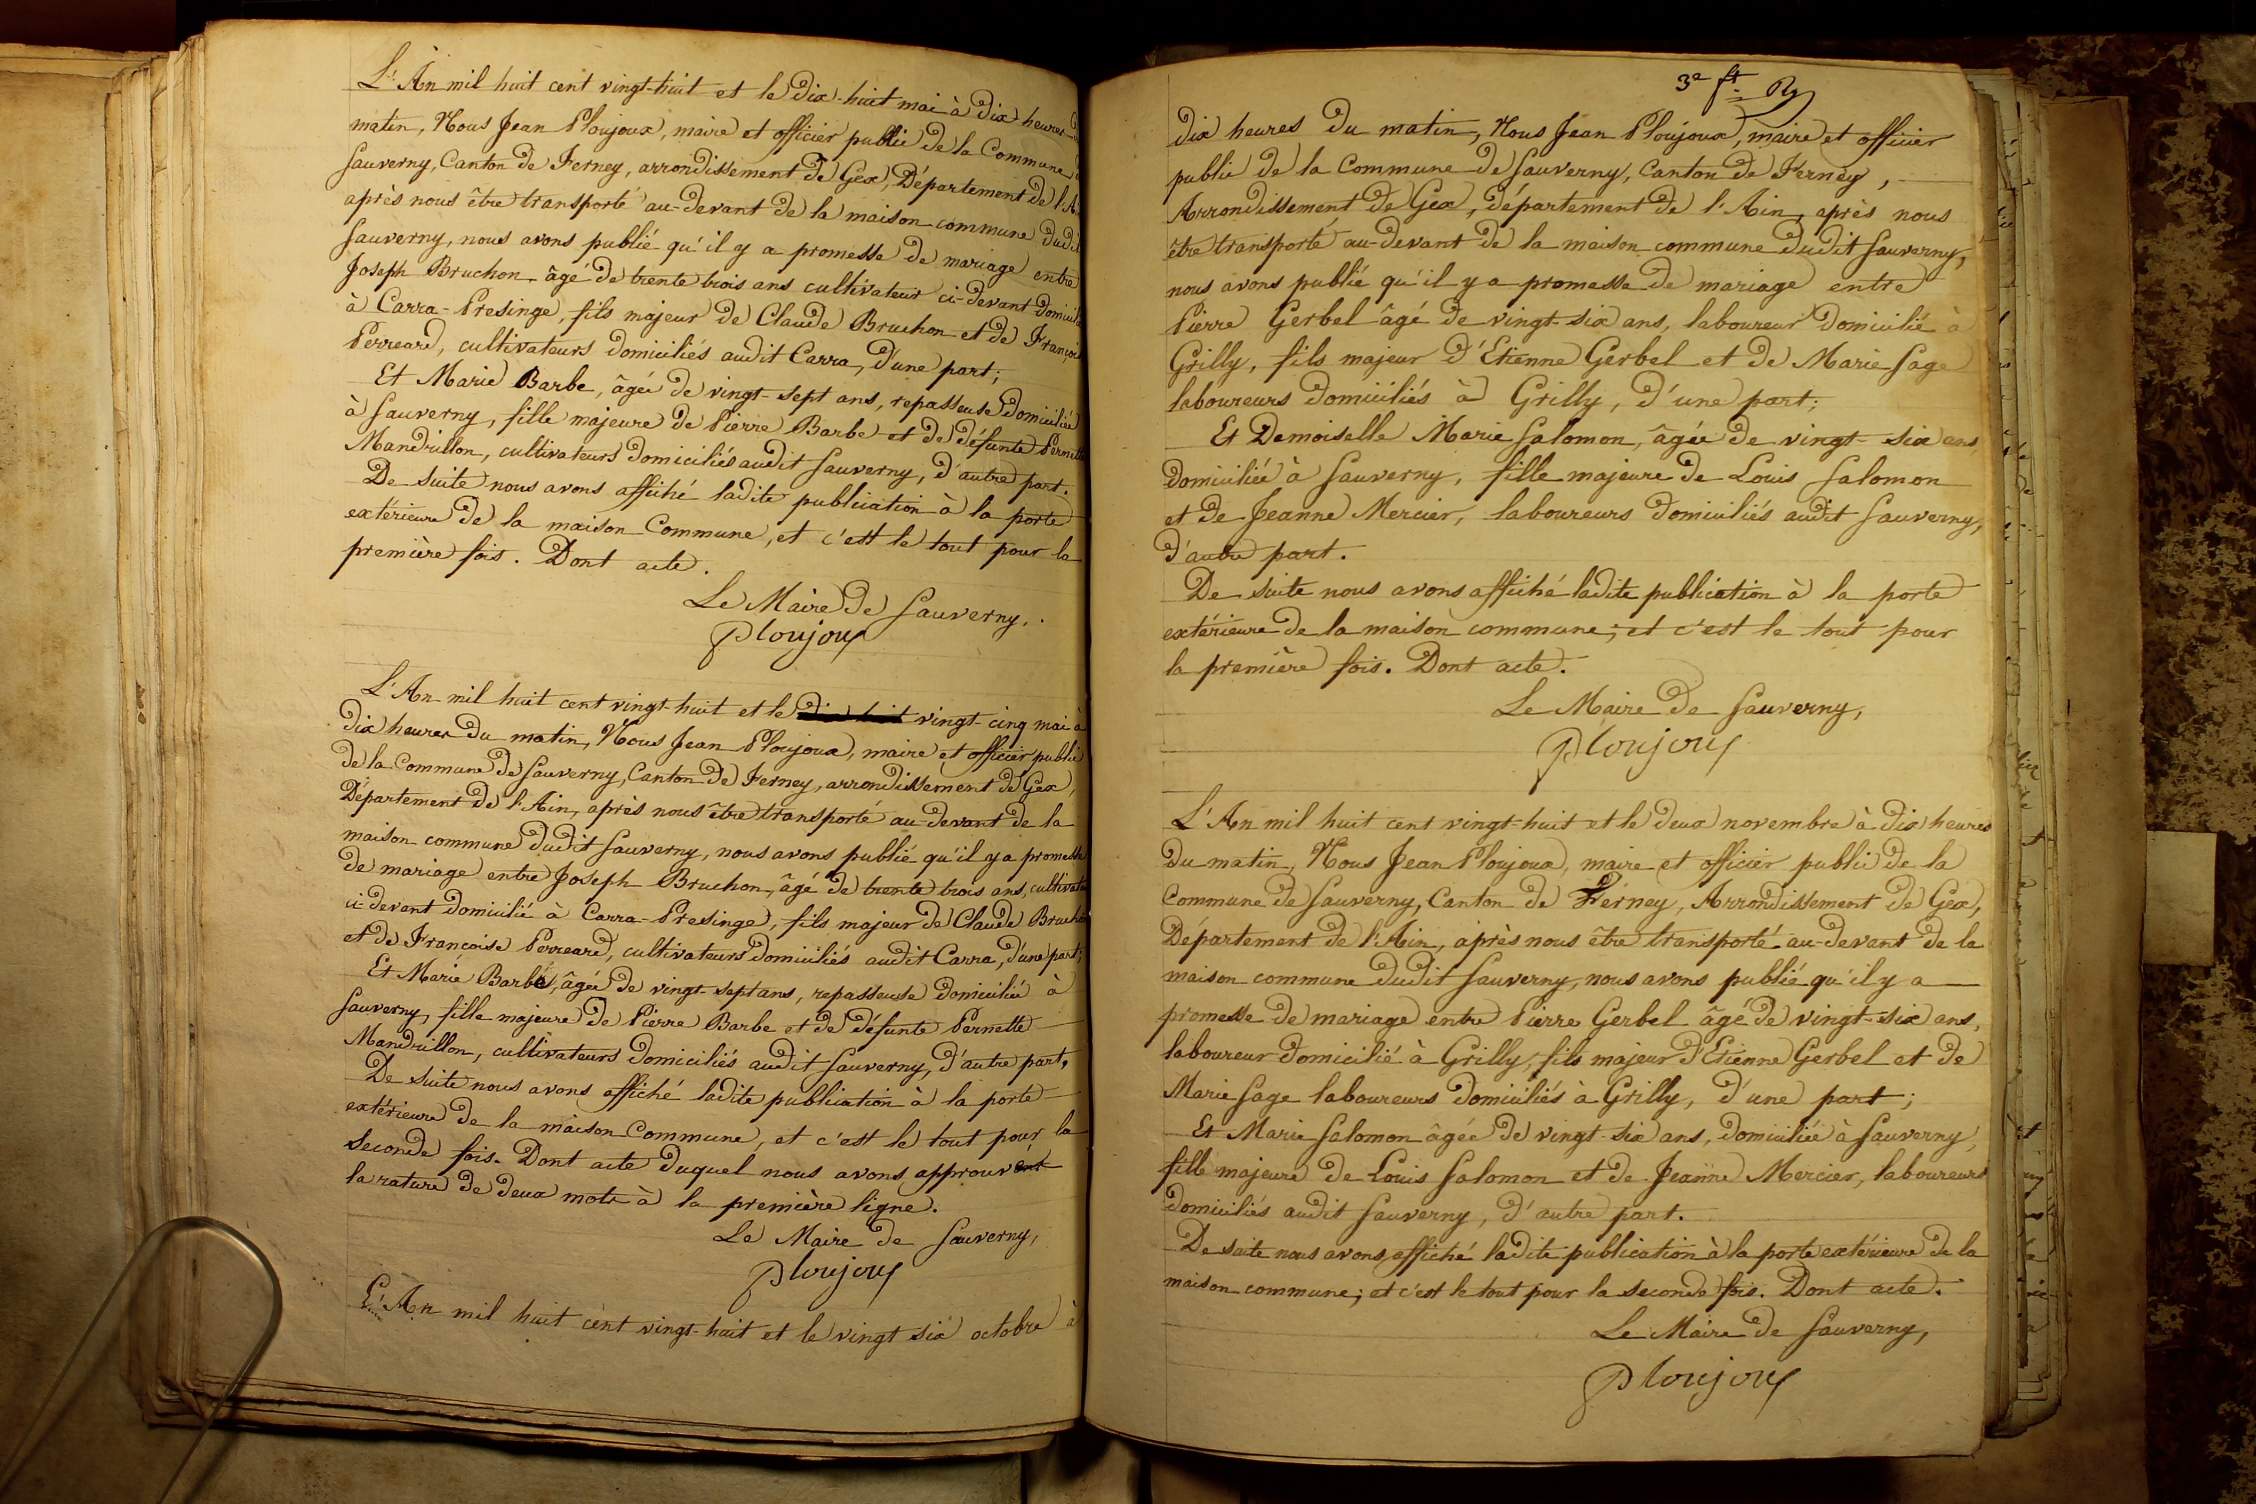 L'An mil huit cent vingt-huit et le dix-huit mai à dix heures
matin, Nous Jean Ploujoux, maire et officier public de la Commune
Sauverny, Canton de Ferney, arrondissement de Gex, Département de l'A
après nous être transporté au-devant de la maison commune dudit
Sauverny, nous avons publié qu'il y a promesse de mariage entre
Joseph Bruchon âgé de trente trois ans cultivateur ci-devant domicilié
à Carra-Presinge, fils majeur de Claude Bruchon et de François
Perreard, cultivateurs domiciliés audit Carra, d'une part;
Et Marie Barbe, âgée de vingt-sept ans, repasseuse domiciliée
à Sauverny, fille majeure de Pierre Barbe et de défunte Pernette
Mandrillon, cultivateurs domiciliés audit Sauverny, d'autre part.
De suite nous avons affiché ladite publication à la porte
extérieure de la maison Commune, et c'est le tout pour la
première fois. Dont acte.
Le Maire de Sauverny.
Ploujoux
L'An mil huit cent vingt-huit et le dix huit vingt-cinq mai à
dix heures du matin, Nous Jean Ploujoux, maire et officier public
de la Commune de Sauverny, Canton de Ferney, arrondissement de Gex,
Département de l'Ain, après nous être transporté au-devant de la
maison commune dudit Sauverny, nous avons publié qu'il y a promesse
de mariage entre Joseph Bruchon, âgé de trente trois ans, cultivateur
ci-devant domicilié à Carra-Presinge, fils majeur de Claude Bruchon
et de Françoise Perreard, cultivateurs domiciliés audit Carra, d'une part;
Et Marie Barbe, âgée de vingt-sept ans, repasseuse domiciliée à
Sauverny, fille majeure de Pierre Barbe et de défunte Pernette
Mandrillon, cultivateurs domiciliés audit Sauverny, d'autre part,
De suite nous avons affiché ladite publication à la porte
extérieure de la maison Commune, et c'est le tout pour la
seconde fois. Dont acte duquel nous avons approuvent
la rature de deux mots à la première ligne.
Le Maire de Sauverny,
Ploujoux
L'An mil huit cent vingt-huit et le vingt six octobre à
3e ft
dix heures du matin, Nous Jean Ploujoux, maire et officier
public de la Commune de Sauverny, Canton de Ferney,
Arrondissement de Gex, département de l'Ain, après nous
être transporté au-devant de la maison commune dudit Sauverny,
nous avons publié qu'il y a promesse de mariage entre
Pierre Gerbel âgé de vingt-six ans, laboureur domicilié à
Grilly, fils majeur d'Etienne Gerbel et de Marie Sage
laboureurs domiciliés à Grilly, d'une part;
Et Demoiselle Marie Salomon, âgée de vingt-six ans
domiciliée à Sauverny, fille majeure de Louis Salomon
et de Jeanne Mercier, laboureurs domiciliés audit Sauverny,
d'autre part.
De suite nous avons affiché ladite publication à la porte
extérieure de la maison commune; et c'est le tout pour
la première fois. Dont acte.
Le Maire de Sauverny,
Ploujoux
L'An mil huit cent vingt-huit et le deux novembre à dix heures
du matin, Nous Jean Ploujoux, maire et officier public de la
Commune de Sauverny, Canton de Férney, Arrondissement de Gex,
Département de l'Ain, après nous être transporté au-devant de la
maison commune dudit Sauverny, nous avons publié qu'il y a
promesse de mariage entre Pierre Gerbel âgé de vingt-six ans,
laboureur domicilié à Grilly, fils majeur d'Etienne Gerbel et de
Marie Sage laboureurs domiciliés à Grilly, d'une part;
Et Marie Salomon âgée de vingt-six ans, domiciliée à Sauverny,
fille majeure de Louis Salomon et de Jeanne Mercier, laboureurs
domiciliés audit Sauverny, d'autre part.
De suite nous avons affiché ladite publication à la porte extérieure de la
maison commune; et c'est le tout pour la seconde fois. Dont acte.
Le Maire de Sauverny,
Ploujoux